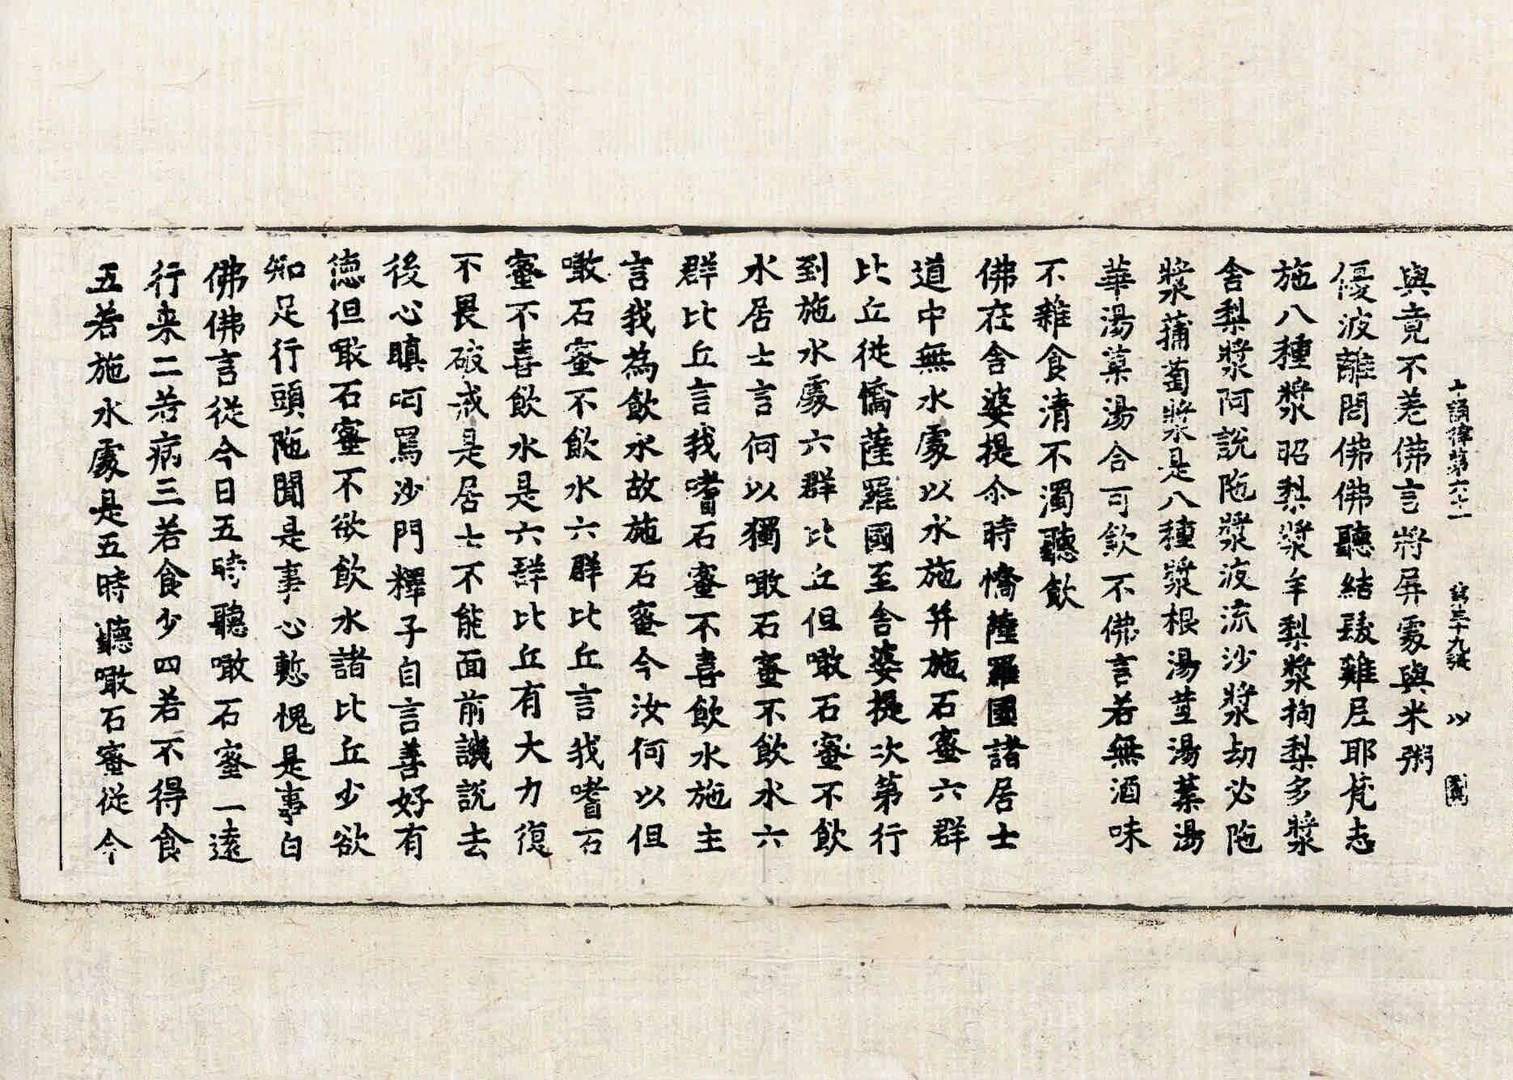 十誦律第六十一 第三十九張 以
與竟不差佛言將屏處與米粥
優波離問佛佛聽結髮雞尼耶梵志
施八種漿昭梨漿牟梨漿拘梨多漿
舍梨漿阿說陁漿波流沙漿劫必陁
漿蒲萄漿是八種漿根湯莖湯葉湯
華湯菓湯合可飲不佛言若無酒味
不雜食清不濁聽飲
佛在舍婆提尒時憍薩羅國諸居士
道中無水處以水施并施石蜜六群
比丘從憍薩羅國至舍婆提次第行
到施水處六群比丘但噉石蜜不飲
水居士言何以獨噉石蜜不飲水六
群比丘言我嗜石蜜不喜飲水施主
言我為飲水故施石蜜今汝何以但
噉石蜜不飲水六群比丘言我嗜石
蜜不喜飲水是六群比丘有大力復
不畏破戒是居士不能面前譏說去
後心瞋呵罵沙門釋子自言善好有
德但噉石蜜不欲飲水諸比丘少欲
知足行頭陁聞是事心慙愧是事白
佛佛言從今日五時聽噉石蜜一遠
行来二若病三若食少四若不得食
五若施水處是五時聽噉石蜜從今